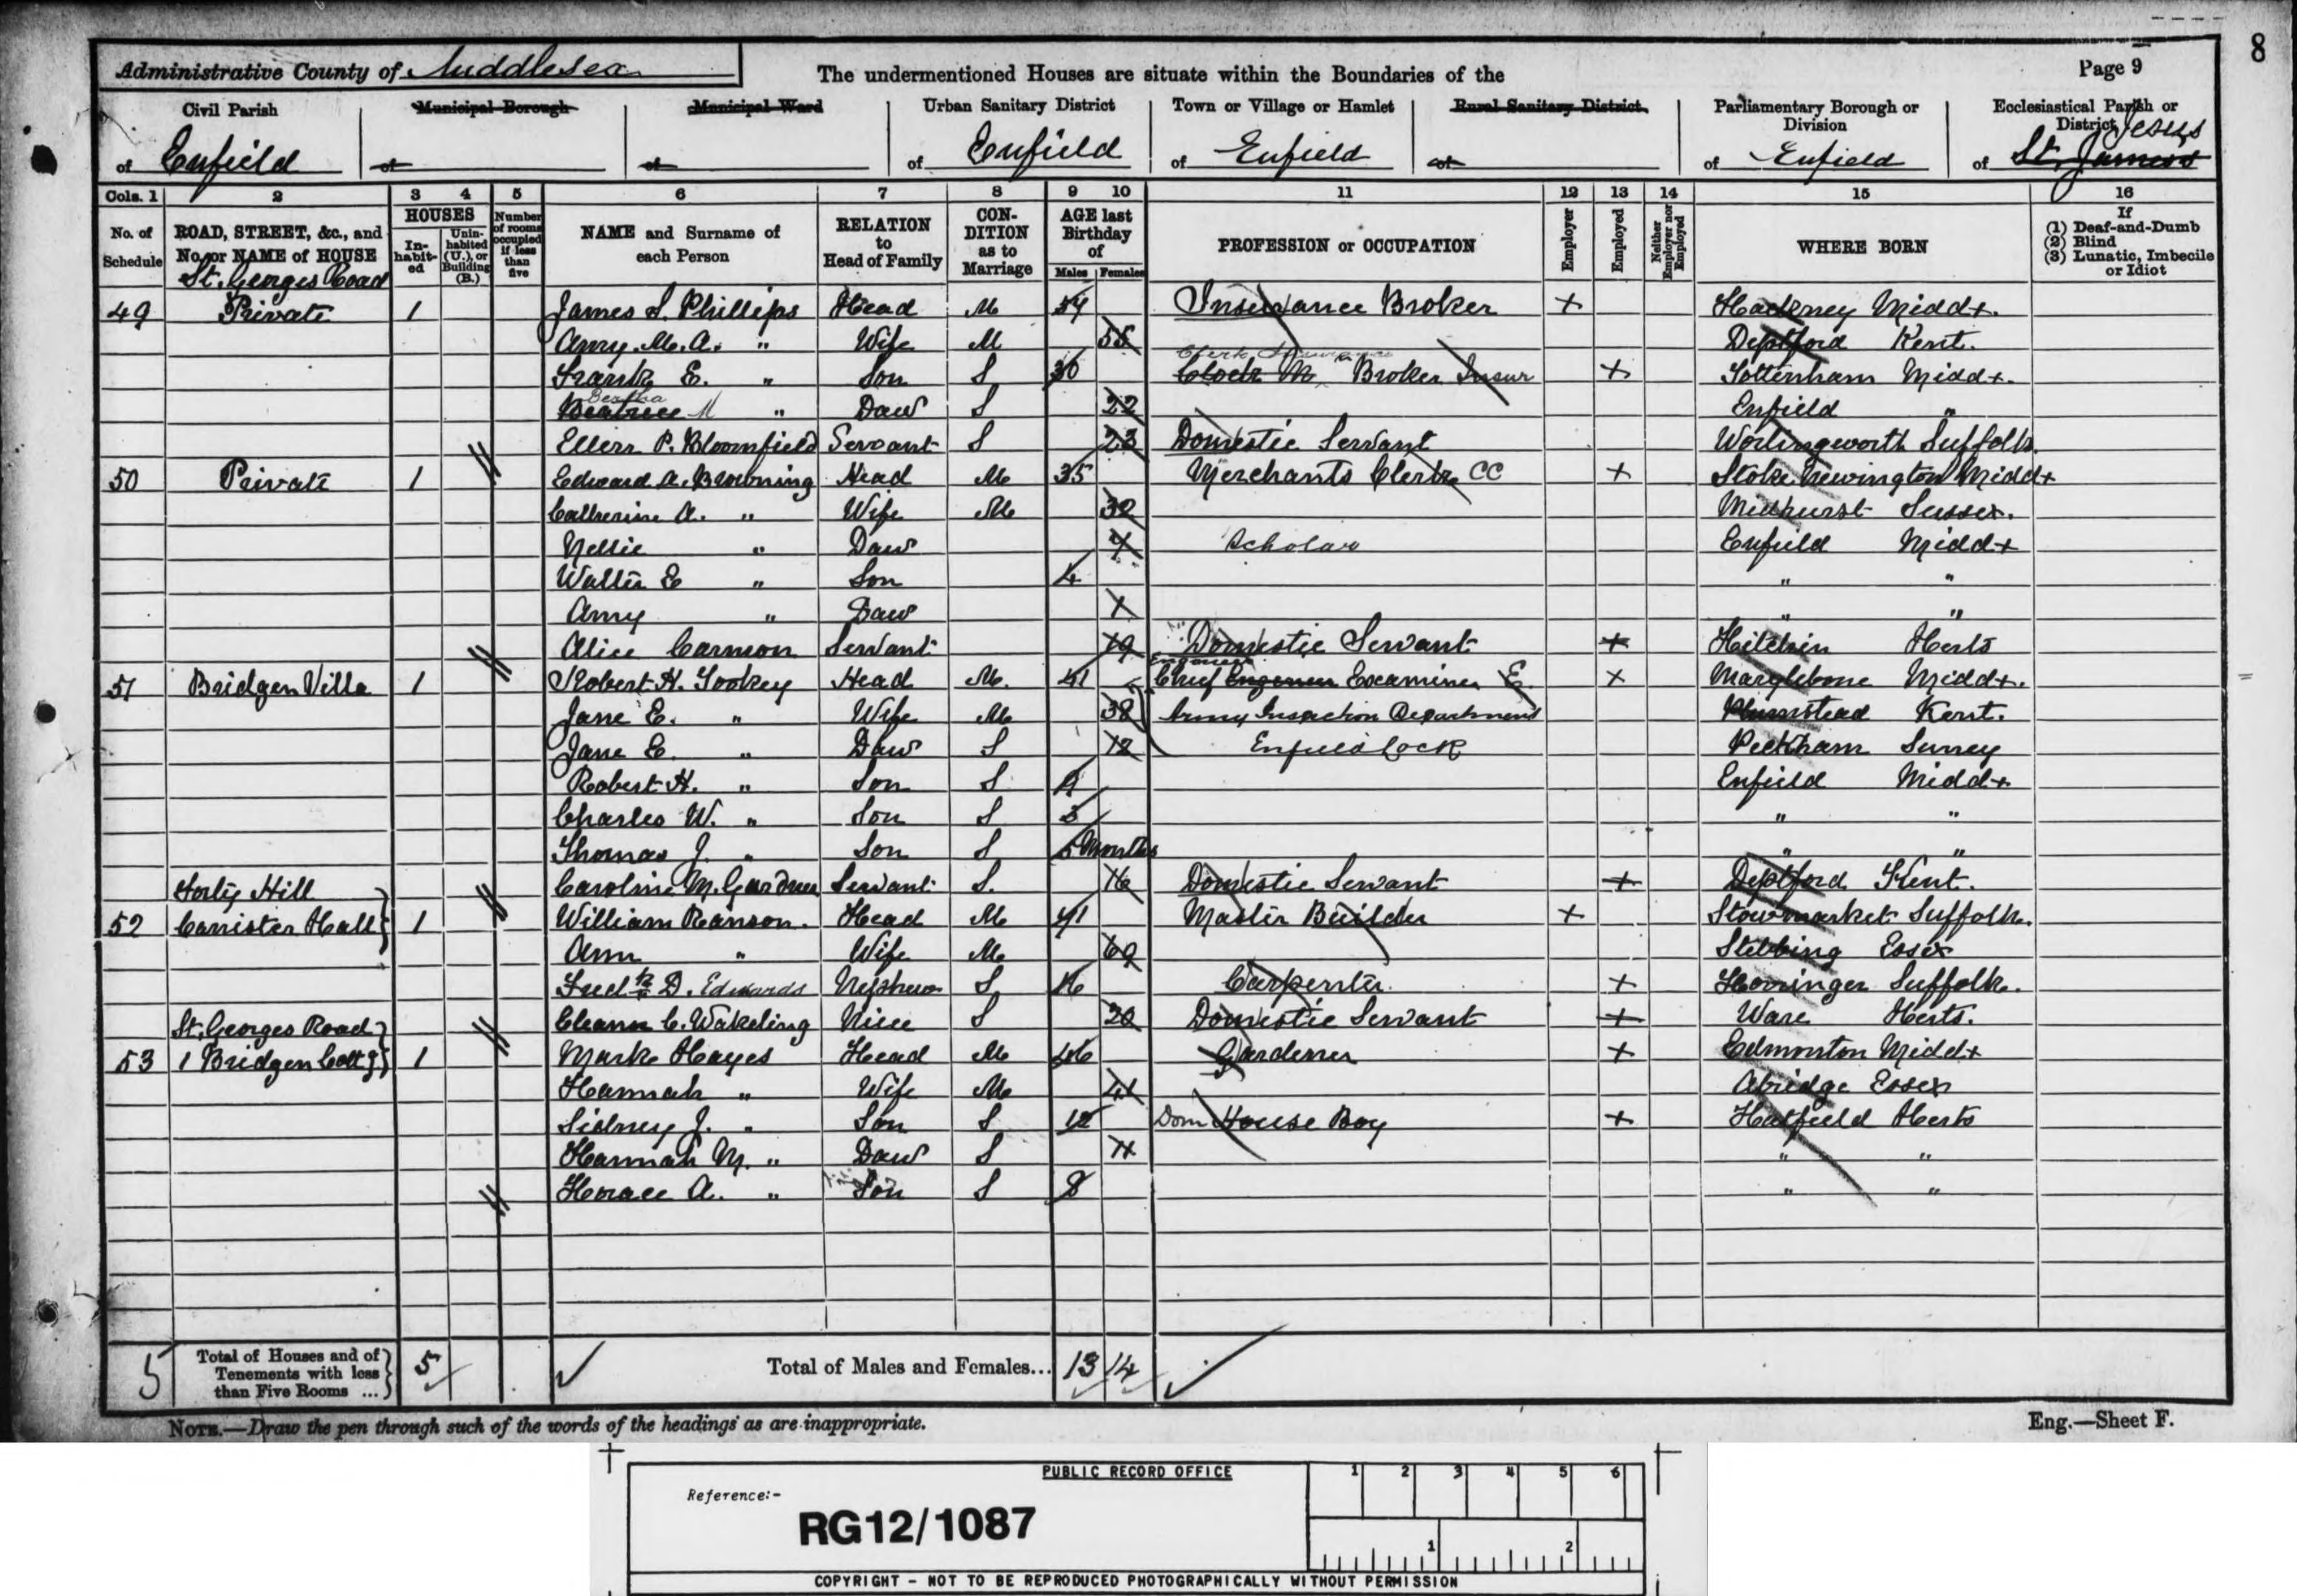 8
Administrative County of Middlesex
The undermentioned Houses are situate within the Boundaries of the
Page 9
Civil Parish of Enfield
Municipal Borough of
Municipal Ward of
Urban Sanitary District of Enfield
Town or Village or Hamlet of Enfield
Rural Sanitary District of
Parliamentary Borough or Division of Enfield
Ecclesiastical Parish or District of St. James Jesus
Cols. 1 2 3 4 5 6 7 8 9 10 11 12 13 14 15 16
No. of Schedule
ROAD, STREET, &c., and No. or NAME of HOUSE
HOUSES
In-habit-ed
Unin-habited (U.), or Building (B.)
Number of rooms occupied if less than five
NAME and Surname of each Person
RELATION to Head of Family
CON-DITION as to Marriage
AGE last Birthday of
Males Females
PROFESSION or OCCUPATION
Employer
Employed
Neither Employer nor Employed
WHERE BORN
If
(1) Deaf-and-Dumb
(2) Blind
(3) Lunatic, Imbecile or Idiot
St. Georges Road
49 Private 1 James S. Phillips Head M 54 Insurance Broker + Hackney Middx.
Amy. M. A. " Wife M 55 Deptford Kent.
Frank E. " Son S 30 Clerk Broker Insur + Tottenham Middx.
Beatrice Bertha M " Daur S 22 Enfield "
Ellen P. Bloomfield Servant S 23 Domestic Servant Worlingworth Suffolk.
50 Private 1 Edward A. Browning Head M 35 Merchants Clerk CC + Stoke Newington Middx
Catherine A. " Wife M 32 Midhurst Sussex.
Nellie " Daur 7 Scholar Enfield Middx
Walter E " Son 4 " "
Amy " Daur 1 " "
Alice Carmon Servant 19 Domestic Servant + Hitchin Herts
51 Bridgen Villa 1 Robert H. Tookey Head M. 41 Chief Engineer Examiner E + Marylebone Middx.
Jane E. " Wife M 38 Army Inspection Department Plumstead Kent.
Jane E. " Daur S 12 Enfield Lock Peckham Surrey
Robert H. " Son S 9 Enfield Middx
Charles W. " Son S 3 " "
Thomas J. " Son S 5 Months " "
Caroline M. Gardner Servant S. 16 Domestic Servant + Deptford Kent.
Forty Hill
52 Carrister Hall 1 William Ranson. Head M 41 Master Builder + Stowmarket Suffolk.
Ann " Wife M 69 Stebbing Essex
Fredk D. Edwards Nephew S 16 Carpenter. + Horringer Suffolk.
Eleanr C. Wakeling Niece S 20 Domestic Servant + Ware Herts.
St. Georges Road
53 1 Bridgen Cottg 1 Mark Hayes Head M 46 Gardener + Edmonton Middx
Hannah " Wife M 41 Abridge Essex
Sidney J. " Son S 12 Dom House Boy + Hatfield Herts
Hannah M. " Daur S 11 " "
Horace A. " Son S 8 " "
5 Total of Houses and of Tenements with less than Five Rooms ... 5
Total of Males and Females... 13 14
NOTE.—Draw the pen through such of the words of the headings as are inappropriate.
Eng.—Sheet F.
PUBLIC RECORD OFFICE
1 2 3 4 5 6
Reference:-
RG12/1087
1 2
COPYRIGHT - NOT TO BE REPRODUCED PHOTOGRAPHICALLY WITHOUT PERMISSION